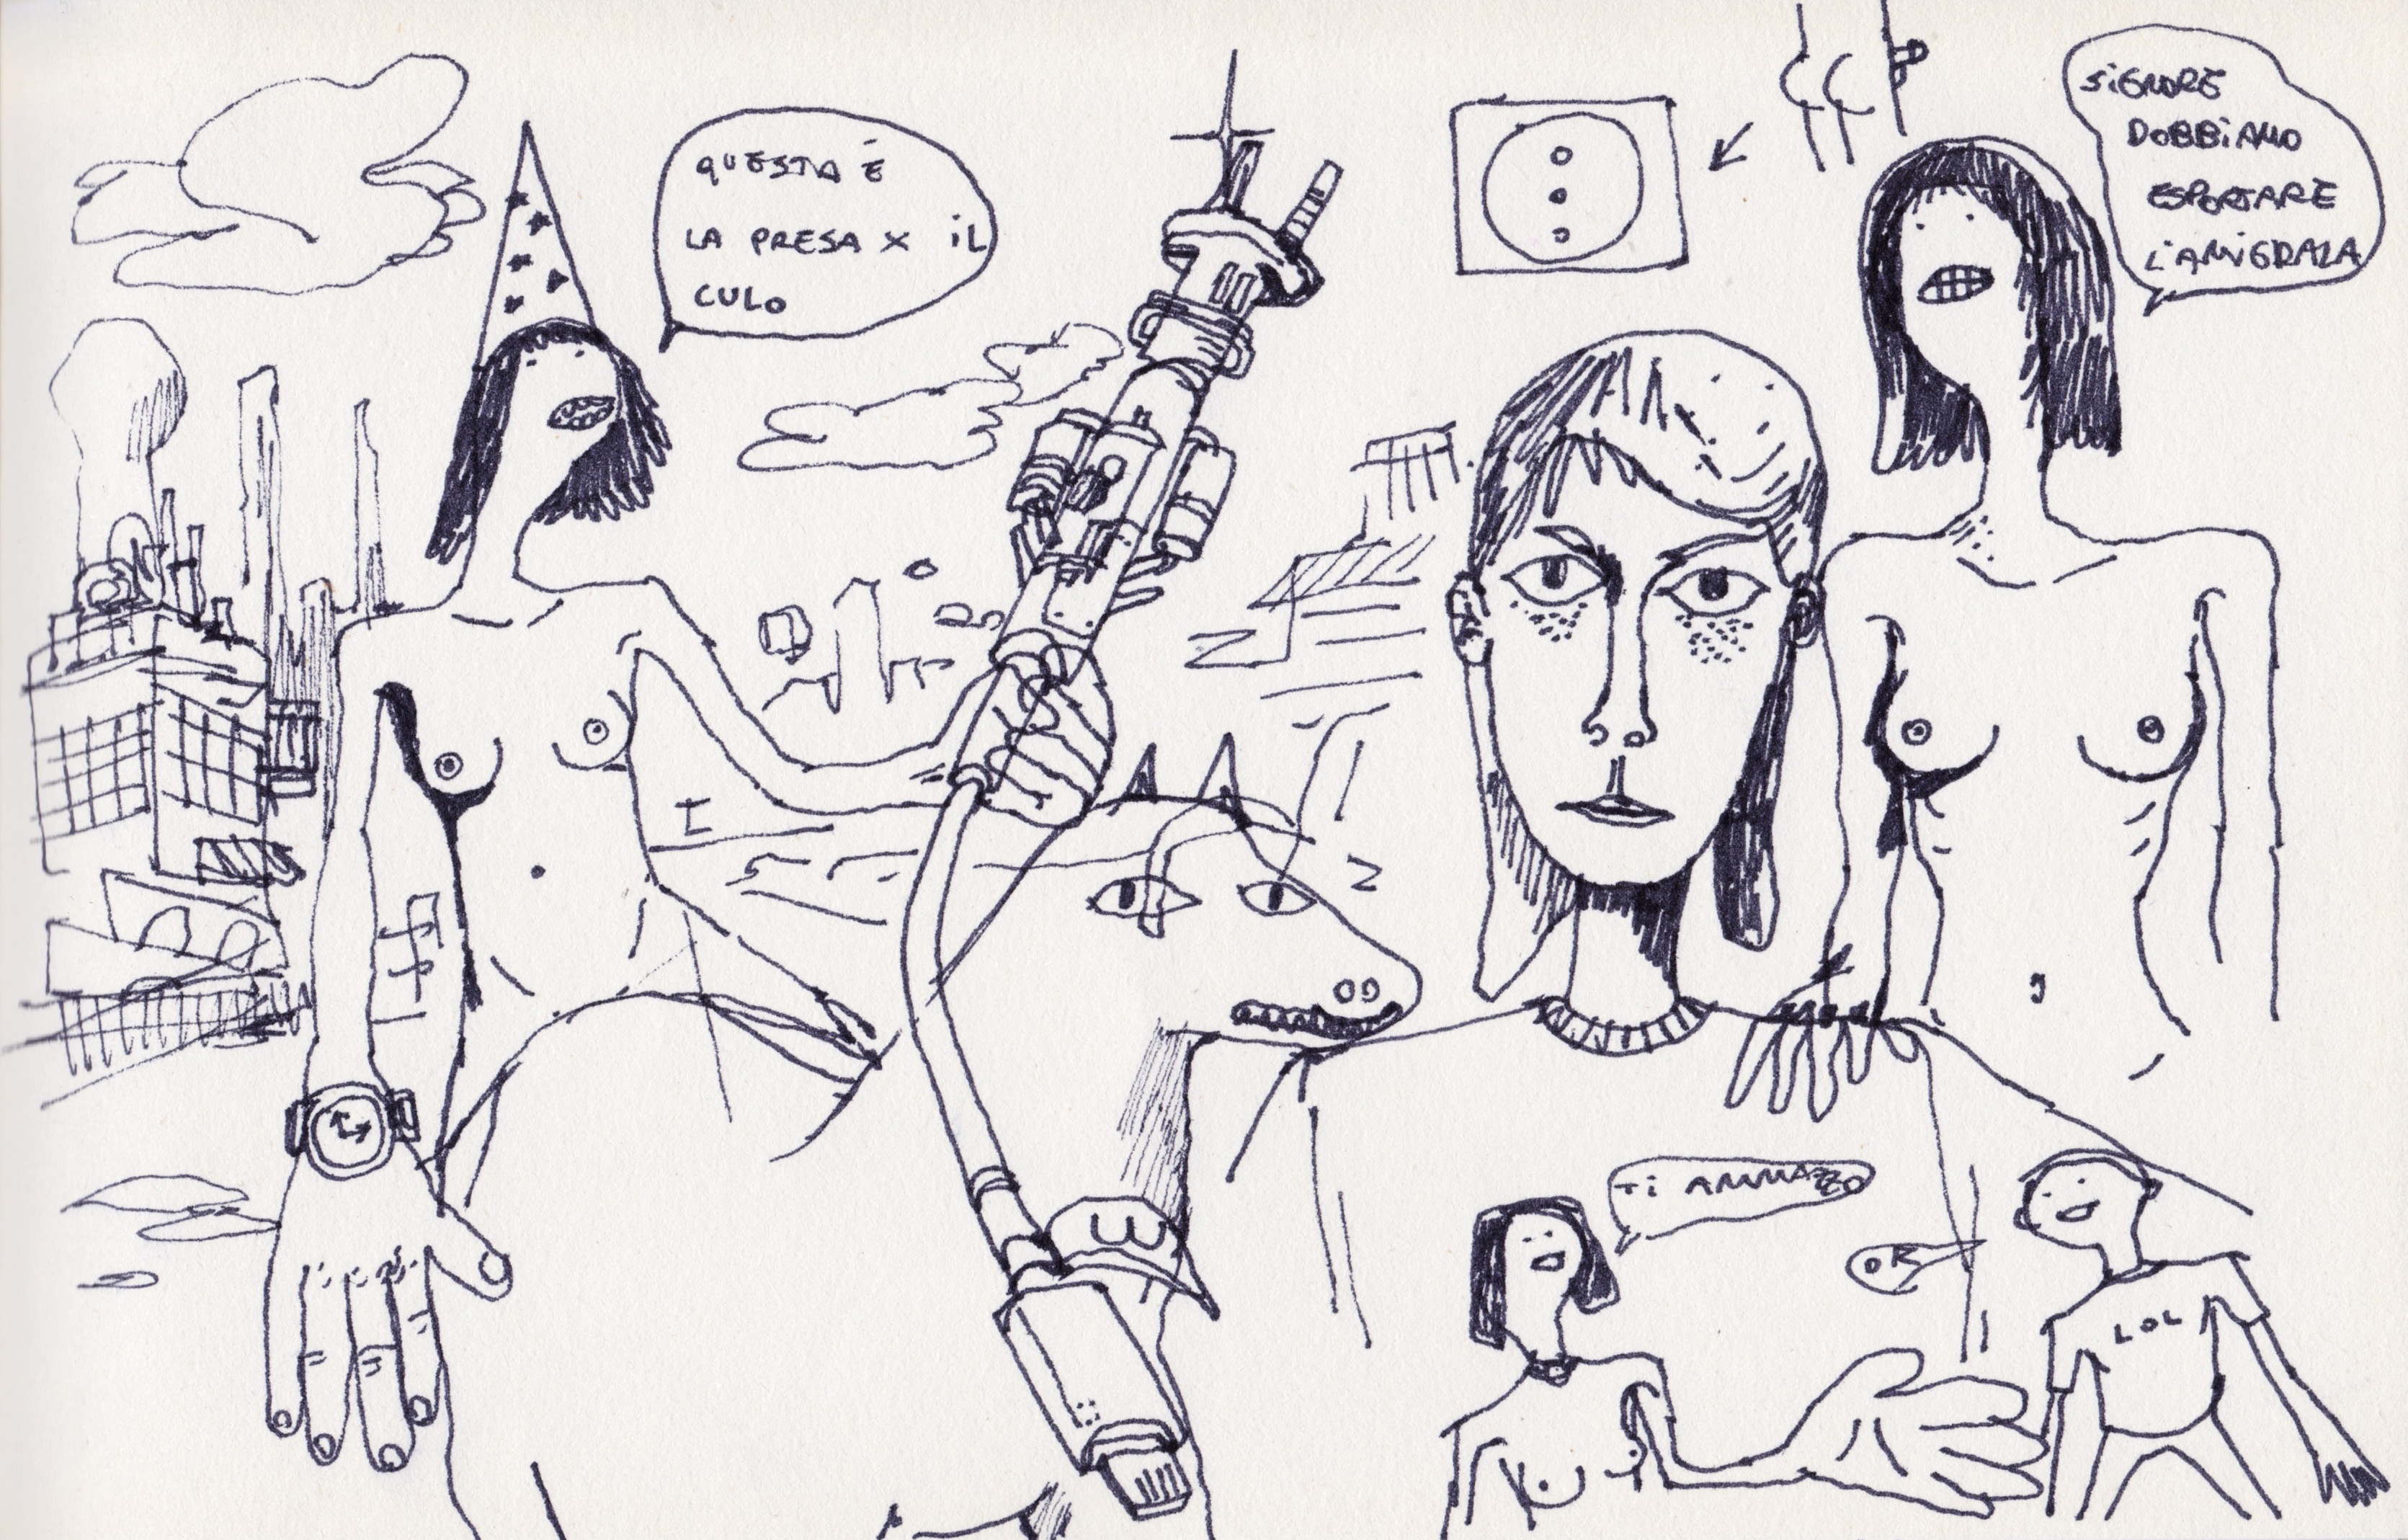 QUESTA È
LA PRESA X IL
CULO
SIGNORE
DOBBIAMO
ESPORTARE
L'AMIGDALA
TI AMMAZZO
OK
LOL